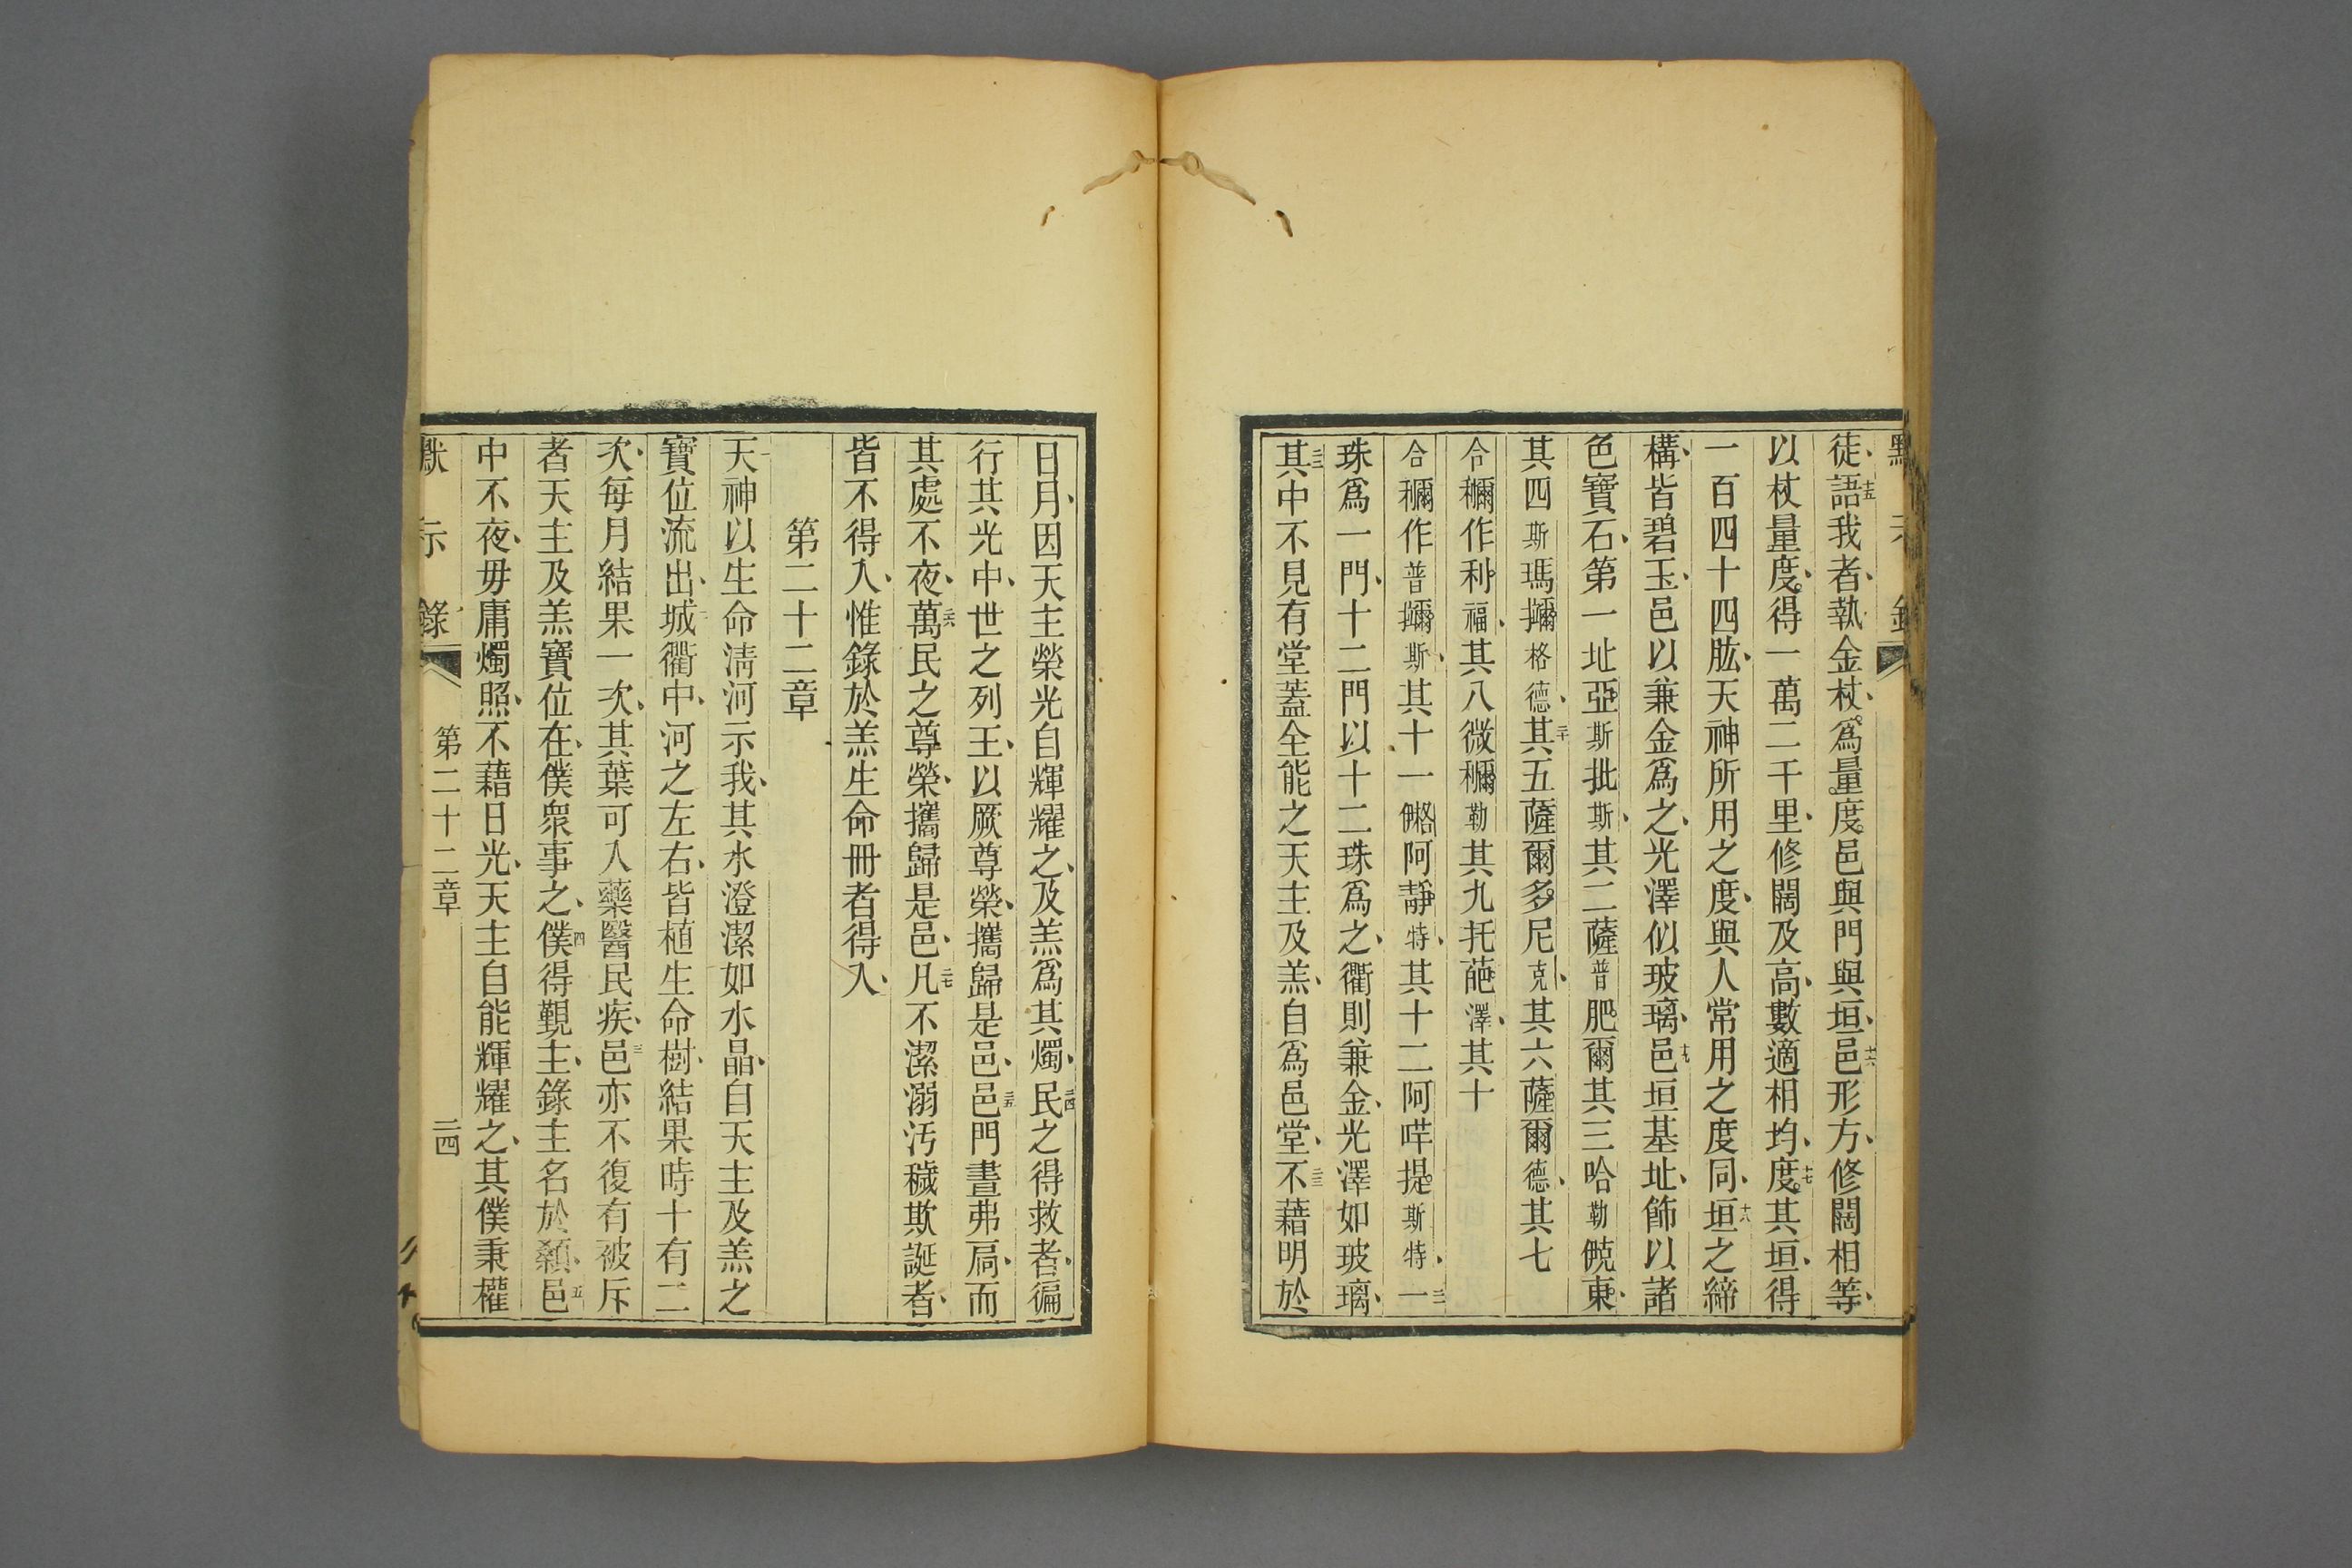 徒、十五語我者、執金杖、爲量度邑與門與垣、十六邑形方、修闊相等、
以杖量度、得一萬二千里、修闊及高、數適相均、十七度其垣、得
一百四十四肱、天神所用之度、與人常用之度同、十八垣之締
構、皆碧玉、邑以兼金爲之、光澤似玻璃、十九邑垣基址、飾以諸
色寶石、第一址亞斯批斯、其二薩普肥爾其三哈勒
其四斯瑪格德、二十其五薩爾多尼克、其六薩爾德、其七
作利福、其八微勒其九托葩澤、其十
作普斯、其十一阿特、其十二阿提斯特、二一
珠爲一門、十二門以十二珠爲之、衢則兼金、光澤如玻璃、
二二其中不見有堂蓋全能之天主及羔、自爲邑堂、二三不藉明於
日月、因天主榮光自輝耀之、及羔爲其燭、二四民之得救者、徧
行其光中、世之列王、以厥尊榮、攜歸是邑、二五邑門晝弗扃、而
其處不夜、二六萬民之尊榮、攜歸是邑、二七凡不潔溺汚穢欺誕者、
皆不得入、惟錄於羔生命冊者得入、
第二十二章
一天神以生命淸河示我、其水澄潔如水晶、自天主及羔之
寶位流出、二城衢中、河之左右、皆植生命樹、結果時十有二
次、每月結果一次、其葉可入藥醫民疾、三邑亦不復有被斥
者天主及羔寶位在、僕衆事之、四僕得觀主、錄主名於顙、五邑
中不夜、毋庸燭照、不藉日光、天主自能輝耀之、其僕秉權
默示錄 第二十二章 二四